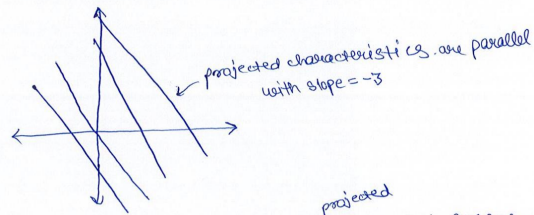 projected characteristics are parallel
with slope = -3
projected